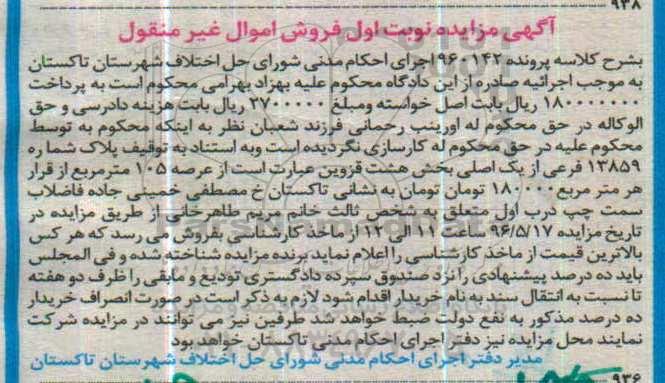 ۹۳۸
آگهی مزایده نوبت اول فروش اموال غیر منقول
بشرح کلاسه پرونده ۹۶۰۱۴۲ اجرای احکام مدنی شورای حل اختلاف شهرستان تاکستان
به موجب اجرائیه صادره از این دادگاه محکوم علیه بهزاد بهرامی محکوم است به پرداخت
۱۸۰۰۰۰۰۰۰ ریال بابت اصل خواسته ومبلغ ۲۷۰۰۰۰۰ ریال بابت هزینه دادرسی و حق
الوکاله در حق محکوم له اورینب رحمانی فرزند شعبان نظر به اینکه محکوم به توسط
محکوم علیه در حق محکوم له کارسازی نگردیده است وبه استناد به توقیف پلاک شما ره
۱۳۸۵۹ فرعی از یک اصلی بخش هشت قزوین عبارت است از عرصه ۱۰۵ مترمربع از قرار
هر متر مربع ۱۸۰۰۰۰ تومان تومان به نشانی تاکستان خ مصطفی خمینی جاده فاضلاب
سمت چپ درب اول متعلق به شخص ثالث خانم مریم طاهرخانی از طریق مزایده در
تاریخ مزایده ۹۶/۵/۱۷ ساعت ۱۱ الی ۱۲ از ماخذ کارشناسی بفروش می رسد که هر کس
بالاترین قیمت از ماخذ کارشناسی را اعلام نماید برنده مزایده شناخته شده و فی المجلس
باید ده درصد پیشنهادی را نزد صندوق سپرده دادگستری تودیع و مابقی را ظرف دو هفته
تا نسبت به انتقال سند به نام خریدار اقدام شود لازم به ذکر است در صورت انصراف خریدار
ده درصد مذکور به نفع دولت ضبط خواهد شد طرفین نیز می توانند در مزایده شرکت
نمایند محل مزایده نیز دفتر اجرای احکام مدنی تاکستان خواهد بود
مدیر دفتر اجرای احکام مدنی شورای حل اختلاف شهرستان تاکستان
۹۳۶